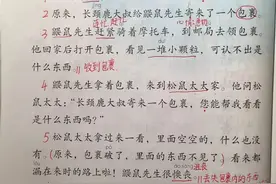 2 原来，长颈鹿大叔给鼹鼠先生寄来了一个包裹。
3 鼹鼠先生赶紧骑着摩托车，到邮局去领包裹。
他回家后打开包裹，看见一堆小颗粒，可认不出是
什么东西。 收到包裹
4 鼹鼠先生拿着包裹，来到松鼠太太家。他问松
鼠太太："长颈鹿大叔寄来一个包裹，您能帮我看看
是什么东西吗？"
5 松鼠太太拿过来一看，里面空空的，什么也没
有。（原来，包裹破了，里面的东西不见了）看来都
漏在来时的路上啦！鼹鼠先生很懊丧